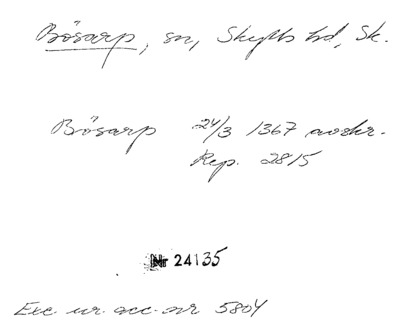 Bösarp, sn, Skytts hd, Sk.
Bösarp 24/3 1367 avskr.
Rep. 2815
Nr 24135
Exc. ur acc. nr 5804